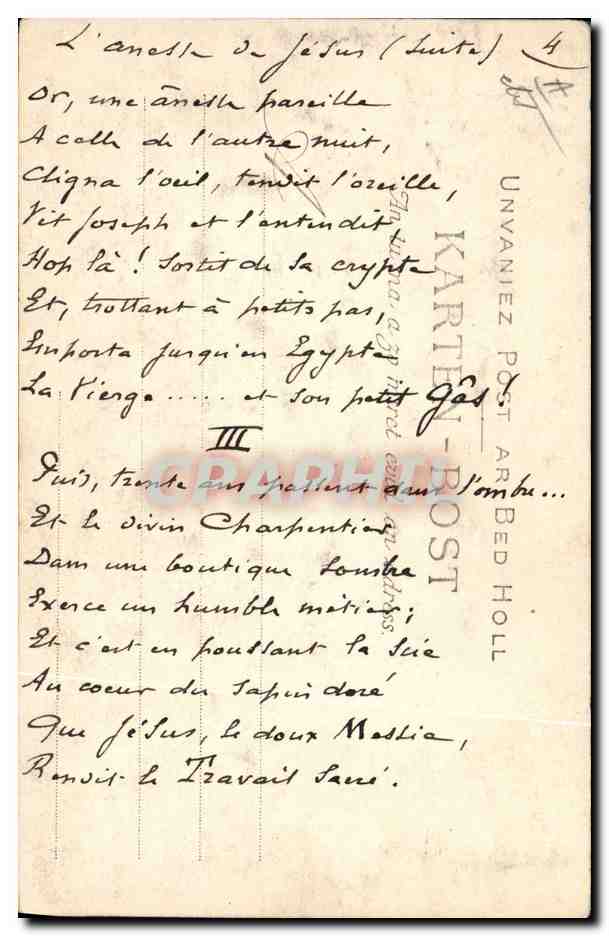 L'anesse de Jésus (suite) 4
Or, une ânesse pareille
A celle de l'autre nuit,
Cligna l'oeil, tendit l'oreille,
Vit Joseph et l'entendit,
Hop là ! Sortit de sa crypte
Et, trottant à petits pas,
Emporta jusqu'en Egypte
La Vierge ...... et son petit Gâs !
III
Puis, trente ans passent dans l'ombre...
Et le divin Charpentier
Dans une boutique sombre
Exerce un humble métier ;
Et c'est en poussant la scie
Au coeur du sapin doré
Que Jésus, le doux Messie,
Rendit le Travail sacré.
UNVANIEZ POST AR BED HOLL
KARTEN-BOST
An tu-ma a zo miret evit an adress.
CPARAMA